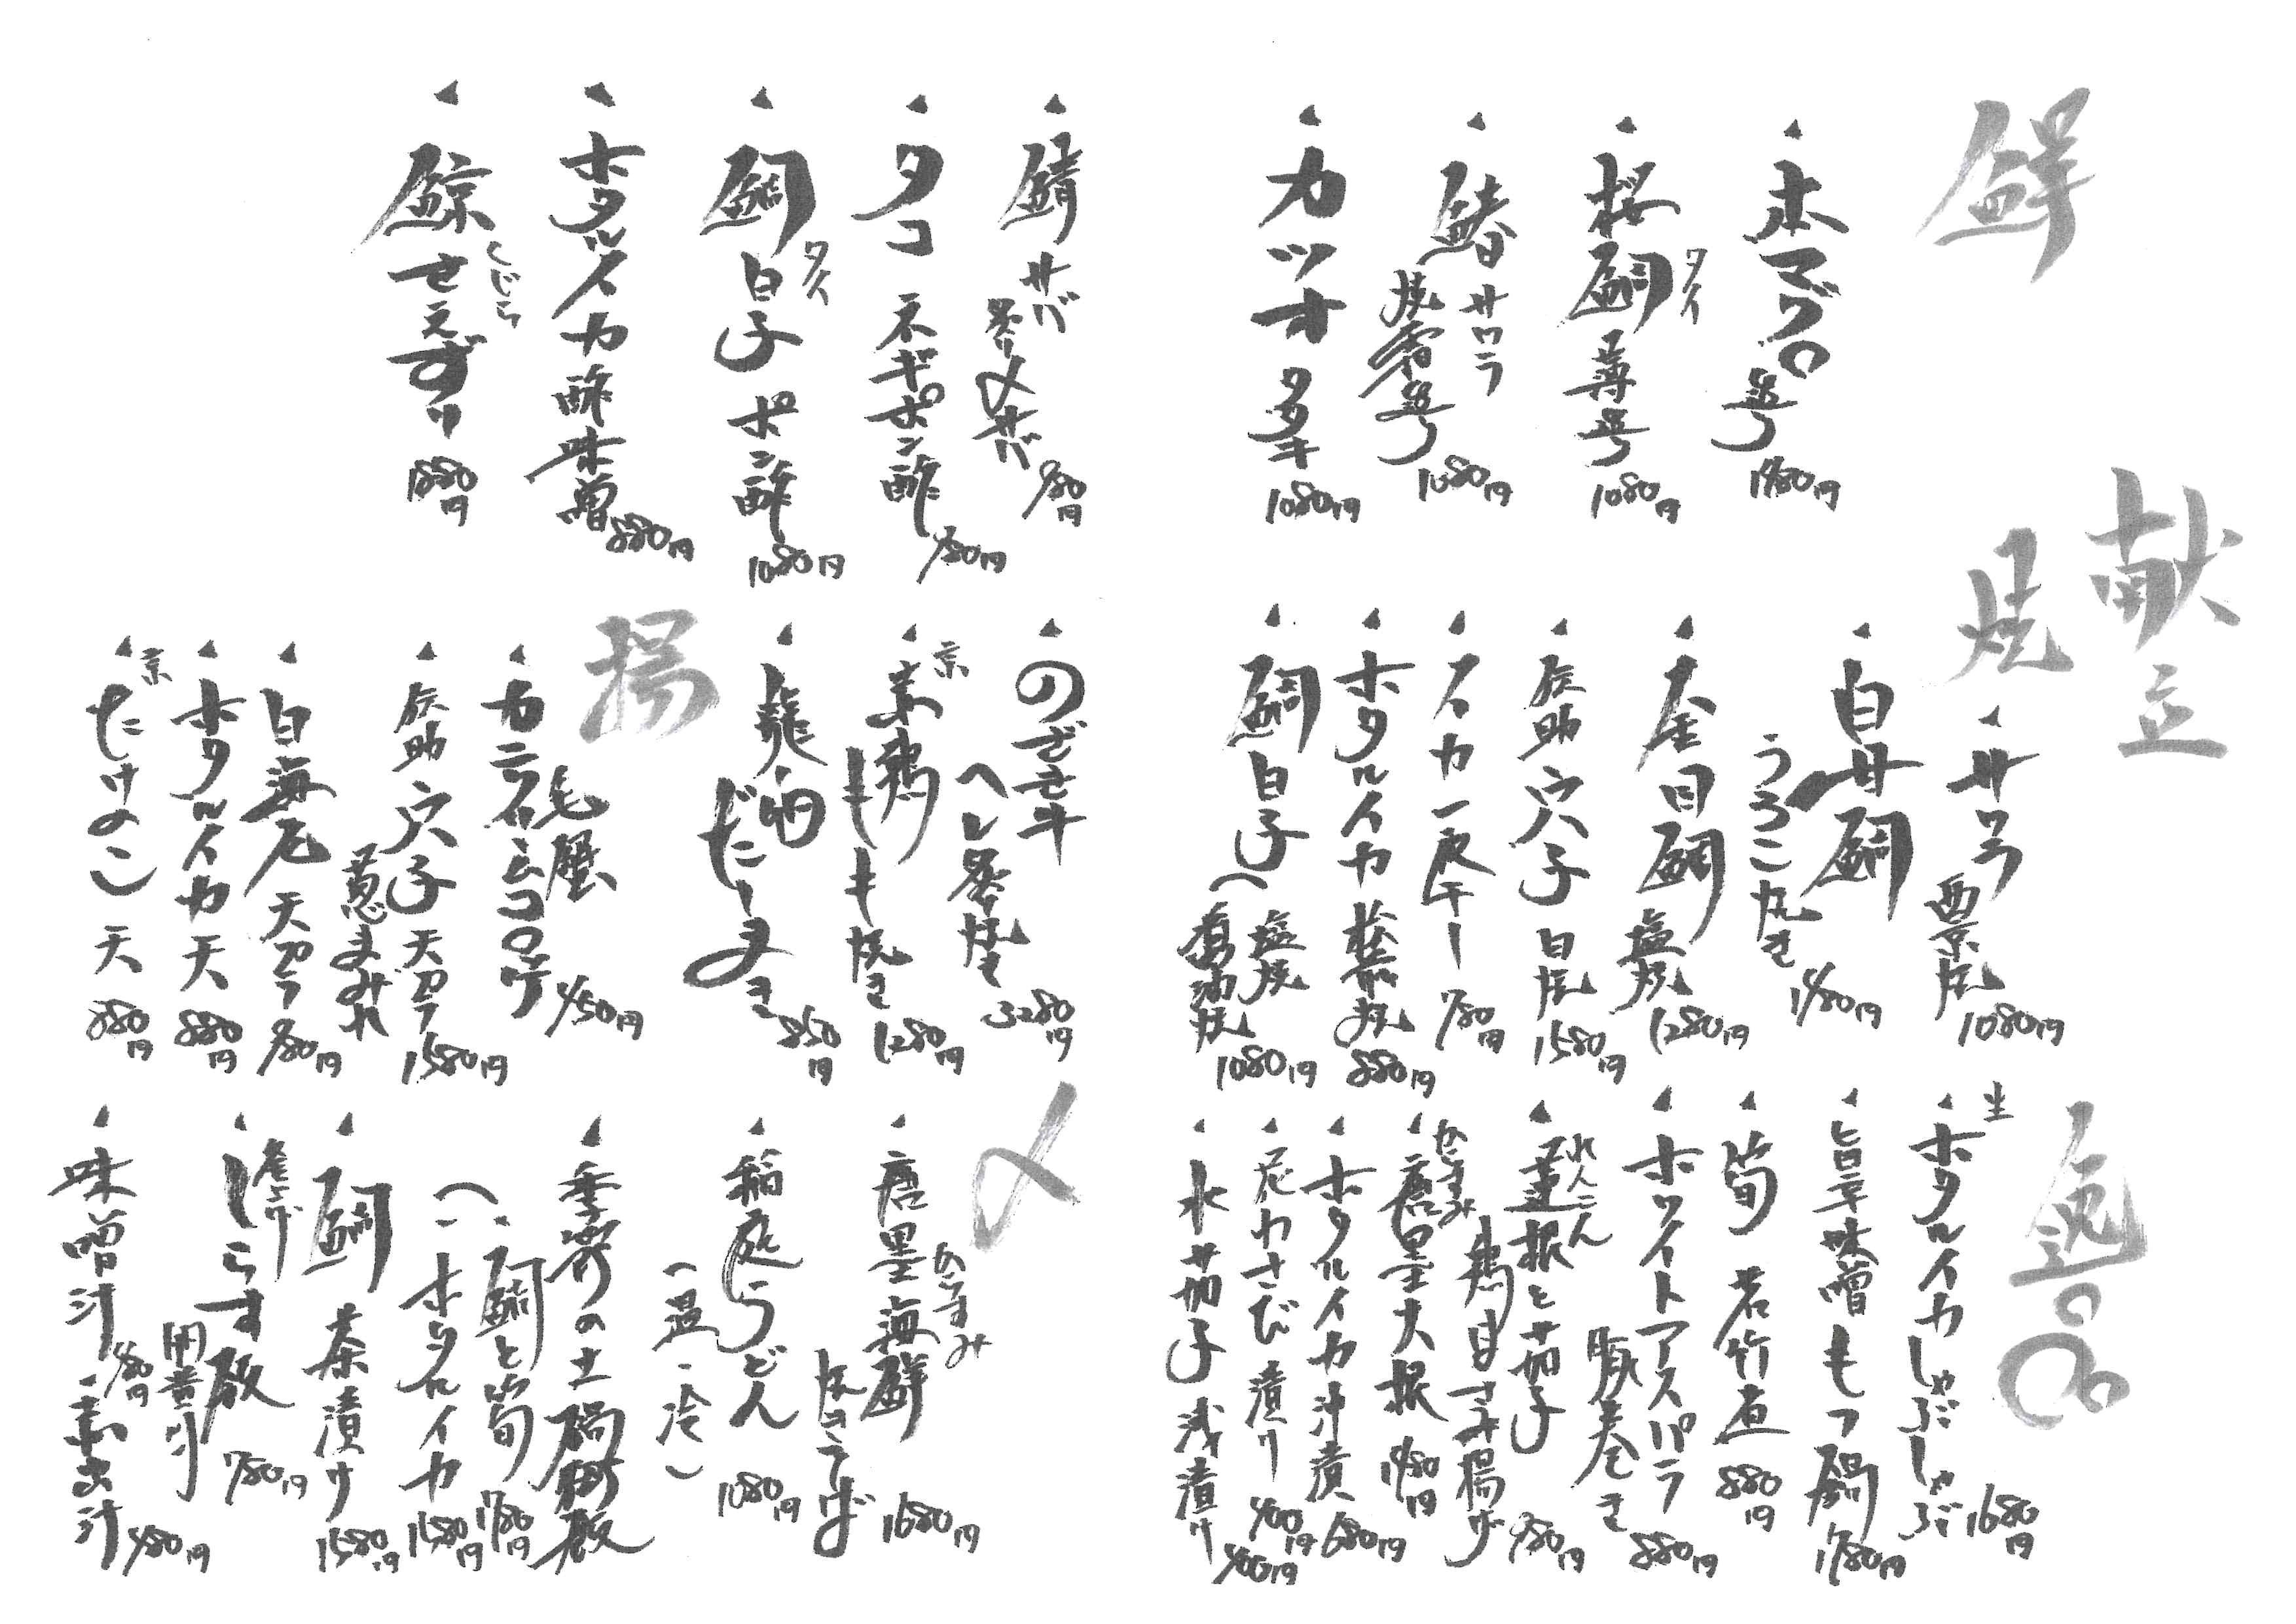 献立
鮮
本マグロ 造り 1780円
桜鯛 タイ 薄造り 1080円
鰆 サワラ 焼霜造り 1080円
カツオ タタキ 1080円
鯖 サバ 炙り〆サバ 980円
タコ ネギポン酢 780円
鯛 タイ 白子 ポン酢 1080円
ホタルイカ 酢味噌 880円
鯨 くじら さえずり 1880円
焼
サワラ 西京焼 1080円
白甘鯛 うろこ焼き 1480円
金目鯛 塩焼 1280円
伝助穴子 白焼 1580円
イカ一夜干し 780円
ホタルイカ 880円
鯛 白子 塩焼 醤油焼 1080円
のざき牛 ヘレ炭焼き 3280円
京鴨 もも焼き 1280円
だしまき 850円
揚
毛蟹 カニクリームコロッケ 450円
伝助穴子 天ぷら 葱まみれ 1580円
白海老 天ぷら 980円
ホタルイカ 天 880円
京 たけのこ 天 880円
逸品
生 ホタルイカしゃぶしゃぶ 1680円
旨辛味噌 もつ鍋 1780円
筍 若竹煮 880円
ホワイトアスパラ 豚巻き 880円
れんこん 蓮根と茄子 鶏甘ズ揚げ 980円
からすみ 唐墨大根 1480円
ホタルイカ沖漬 680円
花わさび 漬け 400円
水茄子 浅漬け 400円
〆
からすみ 唐墨 海鮮 焼きうどん 1680円
稲庭うどん (温・冷) 1080円
季節の土鍋御飯
鯛と筍 1780円
ホタルイカ 1680円
鯛 茶漬け 1580円
釜上げ しらす飯 780円
味噌汁 480円
赤出汁 480円